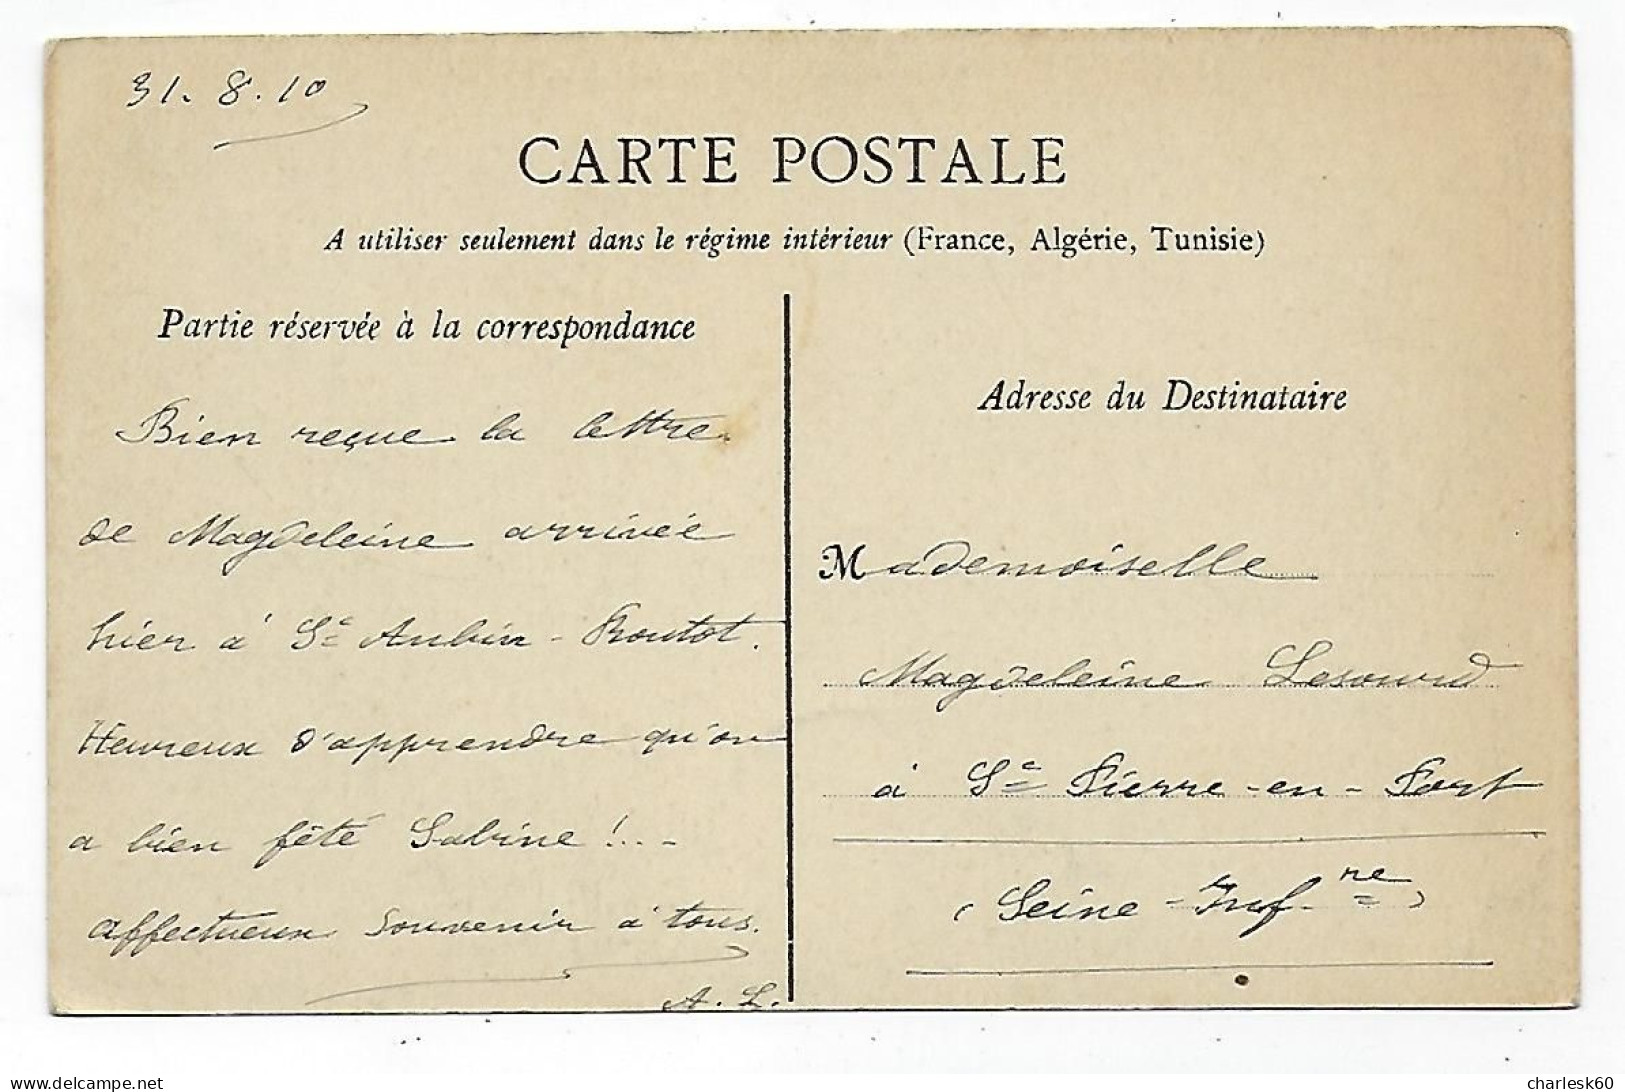 31.8.10
CARTE POSTALE
A utiliser seulement dans le régime intérieur (France, Algérie, Tunisie)
Partie réservée à la correspondance
Bien reçue la lettre
de Magdeleine arrivée
hier à St Aubin-Routot.
Heureux d'apprendre qu'on
a bien fêté Sabine !..
affectueux souvenir à tous.
A. L.
Adresse du Destinataire
Mademoiselle
Magdeleine Lesourd
à St Pierre-en-Port
(Seine-Infre)
delcampe.net
charlesk60